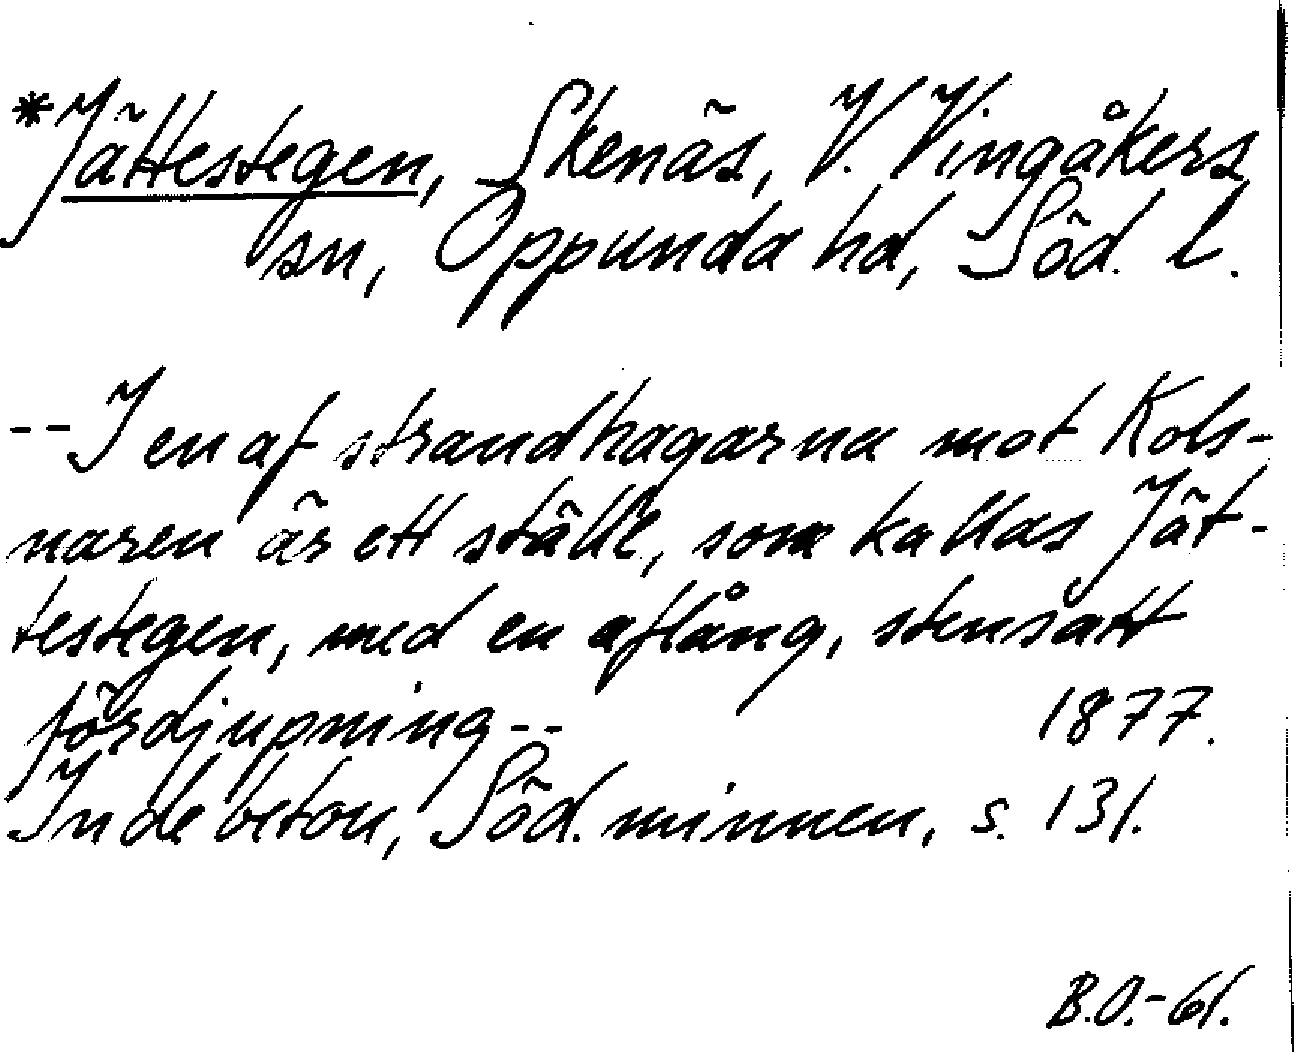 *Jättestegen, Skenäs, V. Vingåkers
sn, Oppunda hd, Söd. l.
-- I en af strandhagarna mot Kols-
naren är ett ställe, som kallas Jät-
testegen, med en aflång, stensatt
fördjupning -- 1877.
Indebetou, Söd. minnen, s. 131.
B.O.-61.